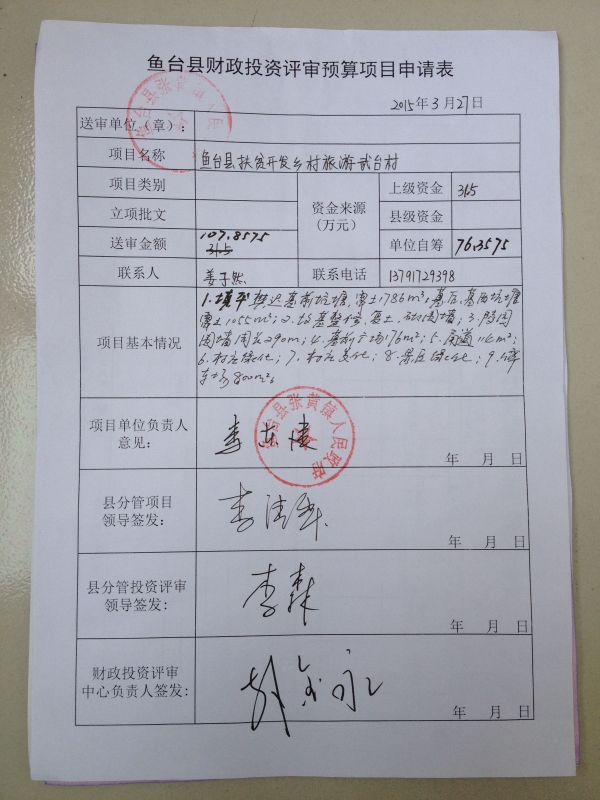 鱼台县财政投资评审预算项目申请表
2015年3月27日
送审单位（章）：
项目名称 鱼台县扶贫开发乡村旅游武台村
项目类别 资金来源（万元） 上级资金 31.5
立项批文 县级资金
送审金额 107.8575 31.5 单位自筹 76.3575
联系人 姜于然 联系电话 13791729398
项目基本情况
1.填平 基前坑塘，需土1786m³，基后、基西坑塘
需土1055m³；2.故基整修、复土、砌围墙，3.
围墙周长290m；4.基前广场176m²；5.
6.村庄绿化；7.村庄文化；8.景区绿化；9.停
车场800m²。
项目单位负责人意见：
鱼台县张黄镇人民政府
年 月 日
县分管项目领导签发：
年 月 日
县分管投资评审领导签发：
李森
年 月 日
财政投资评审中心负责人签发：
年 月 日